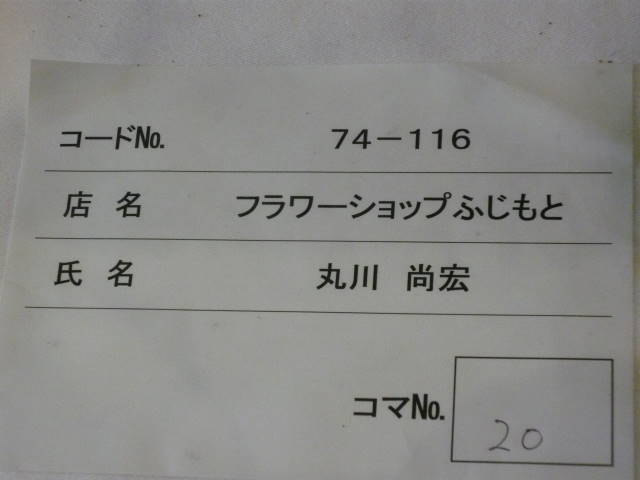 コードNo. 74－116
店名 フラワーショップふじもと
氏名 丸川 尚宏
コマNo. 20